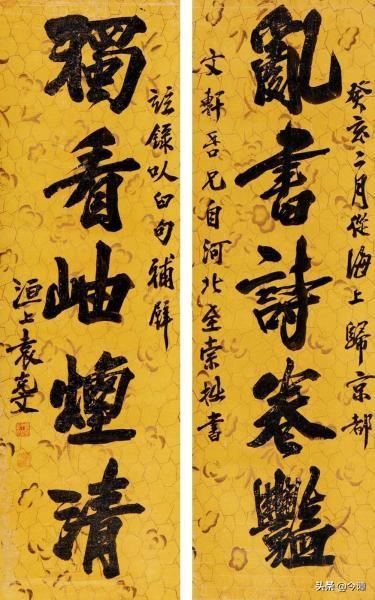 癸亥二月從海上歸京都
亂書詩卷豔
文軒吾兄自河北至索拙書
錄以臼句補屏
獨看岫煙清
洹上袁克文
头条@今瞫